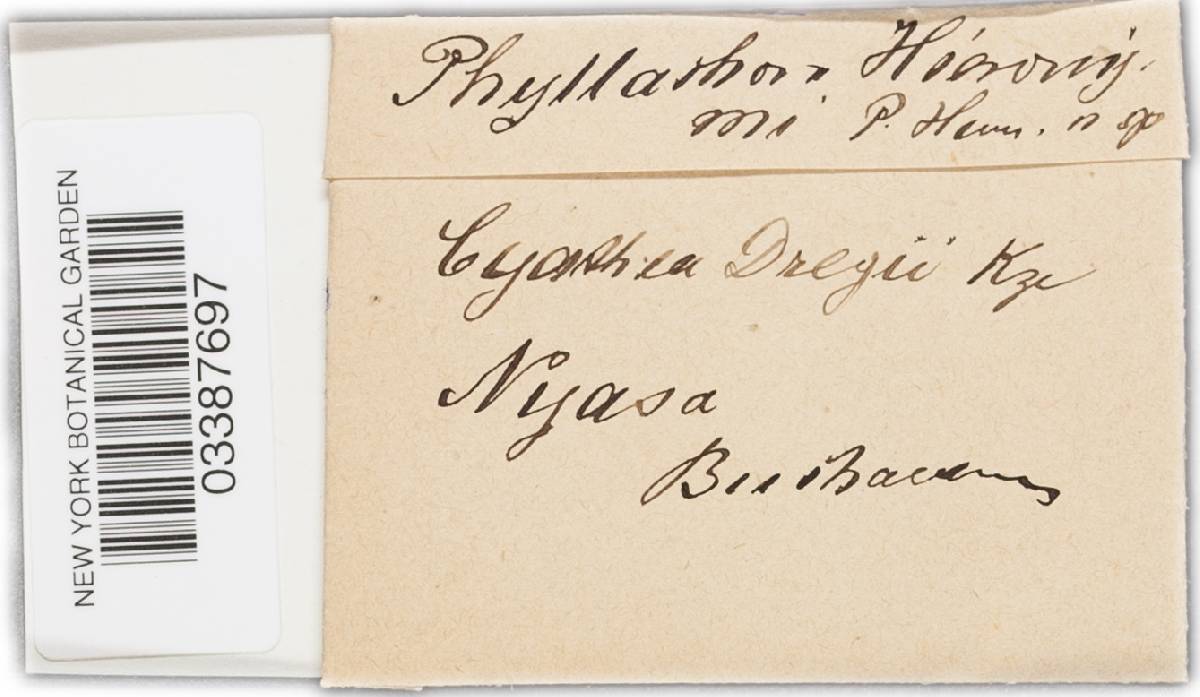 NEW YORK BOTANICAL GARDEN
03387697
Phyllachora Hierony-
mi P. Henn. n sp
Cyathea Dregii Kze
Nyasa
Buchanan